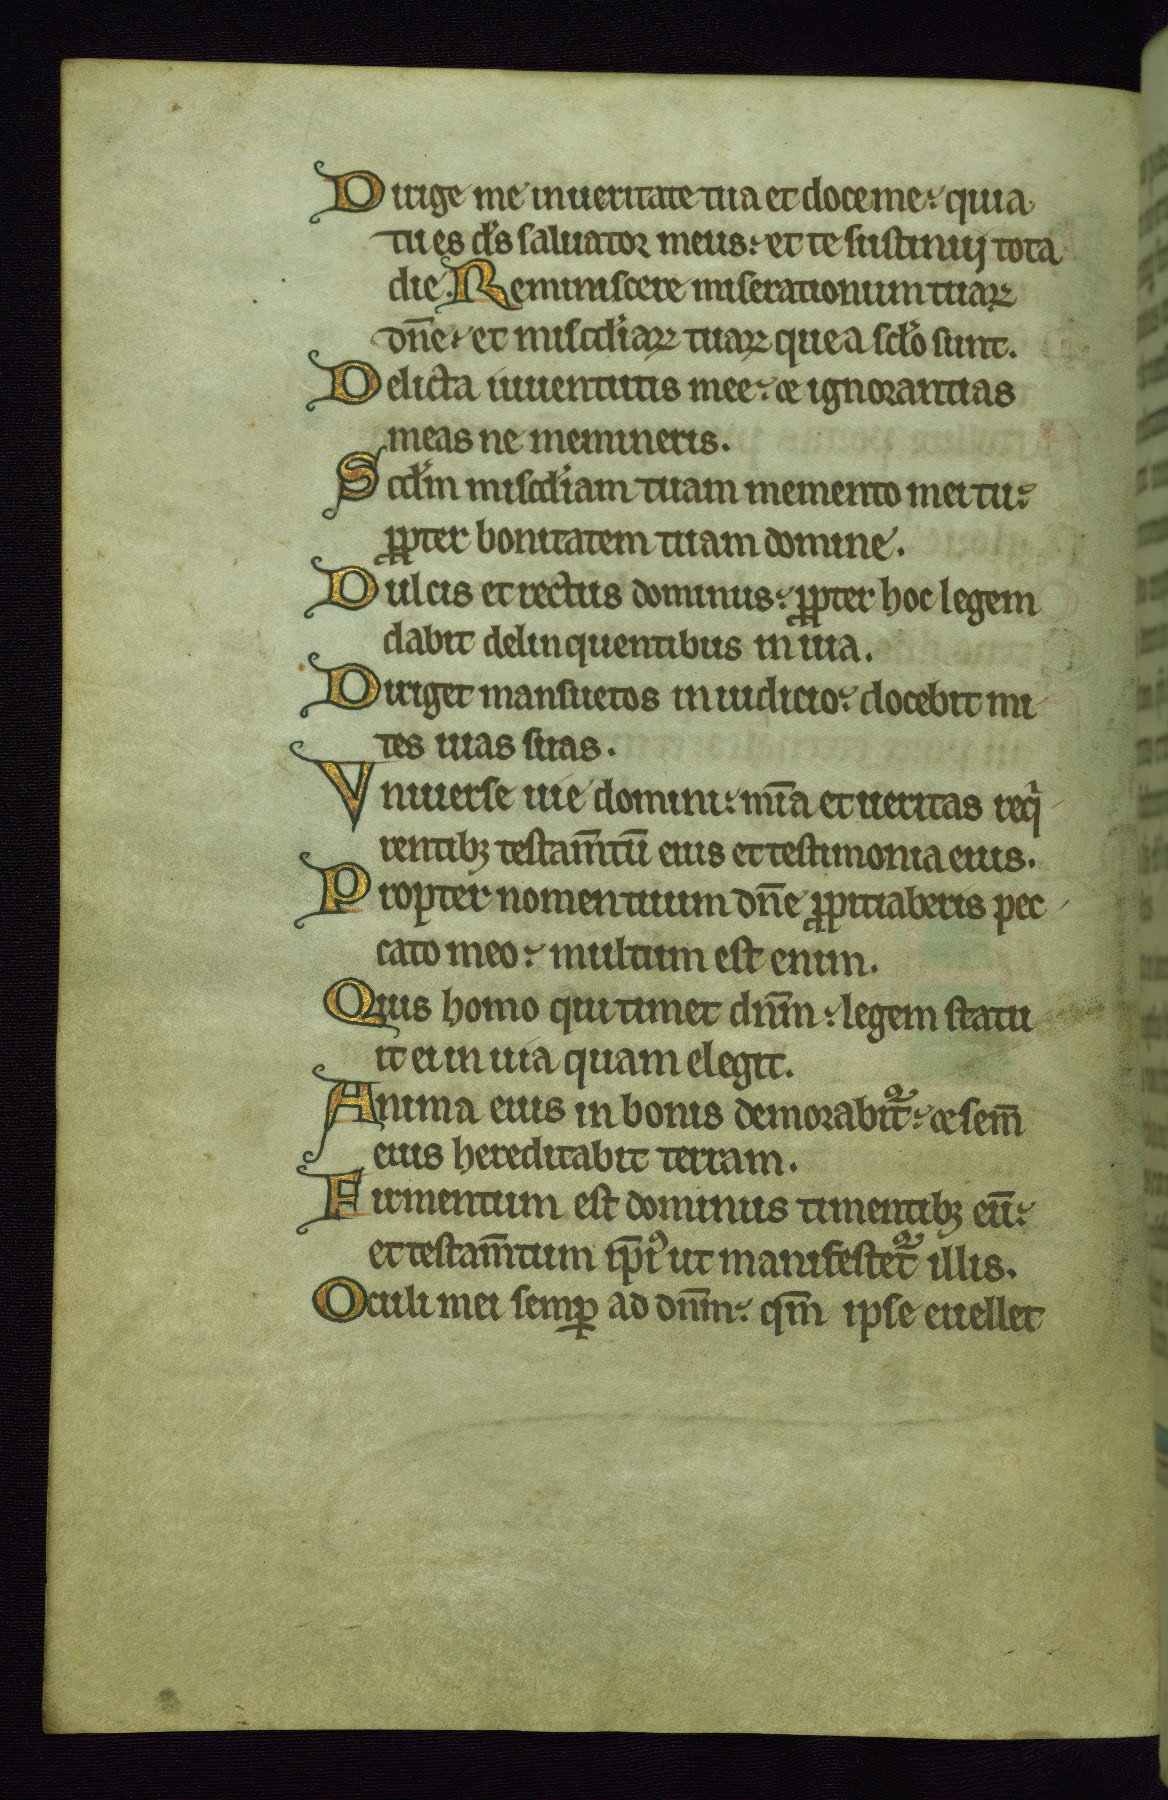 Dirige me in ueritate tua et doce me: quia
tu es dn̄s saluator meus: et te sustinuij tota
die. Reminiscere miserationum tuaꝝ
dn̄e: et misc̄diaꝝ tuaꝝ que a sc̄lo sunt.
Delicta iuuentutis mee: ⁊ ignorantias
meas ne memineris.
Scd̄m misc̄diam tuam memento mei tu:
ꝓpter bonitatem tuam domine.
Dulcis et rectus dominus: ꝓpter hoc legem
dabit delinquentibus in uia.
Diriget mansuetos in iudicio: docebit mi
tes uias suas.
Vniuerse uie domini: mīa et ueritas reqͥ
rentibꝫ testam̄tū eius et testimonia eius.
Propter nomen tuum dn̄e ꝓpitiaberis pec
cato meo: multum est enim.
Quis homo qui timet dn̄m: legem statu
it ei in uia quam elegit.
Anima eius in bonis demorabit᷑: ⁊ sem̄
eius hereditabit terram.
Firmentum est dominus timentibꝫ eū:
et testam̄tum ip̄iꝰ ut manifestet᷑ illis.
Oculi mei semꝑ ad dn̄m: qm̄ ipse euellet